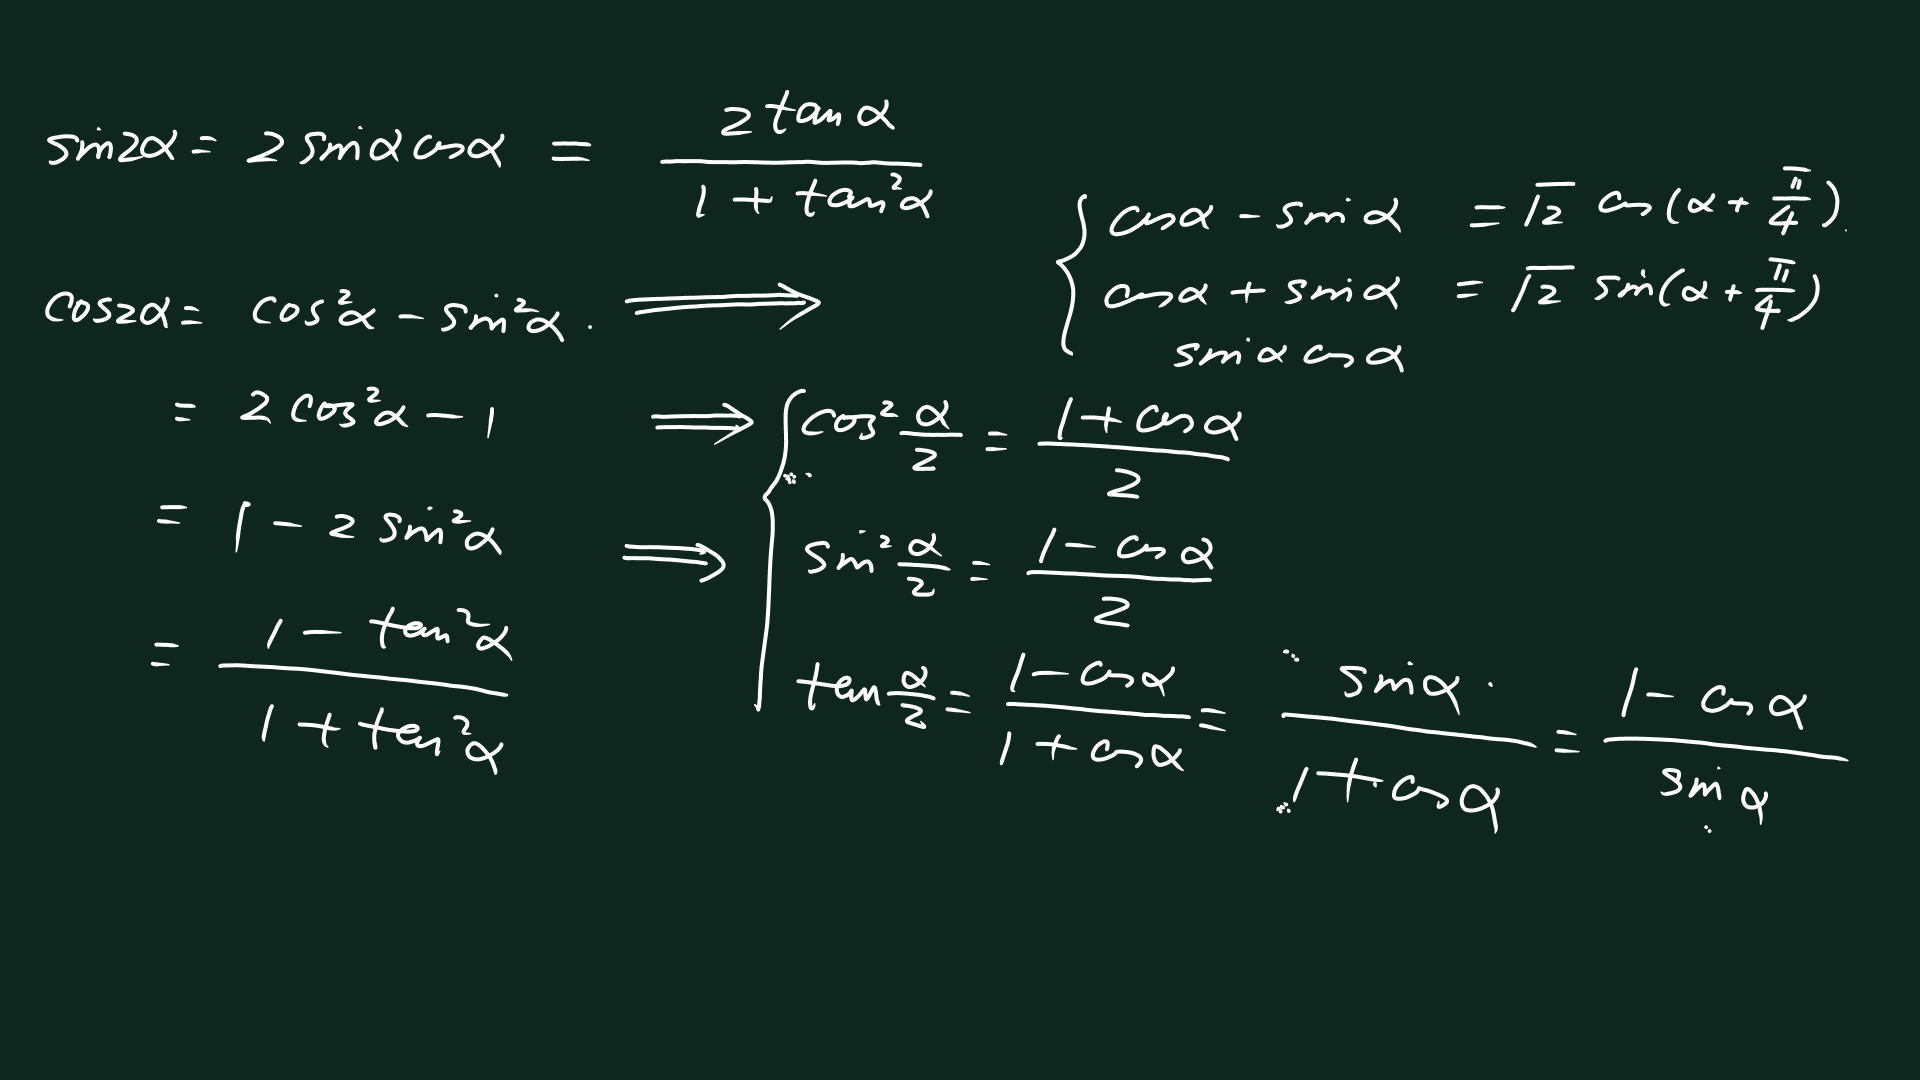 sin2α = 2 sinα cosα = \frac{2 tan α}{1 + tan²α}
cosα - sinα = √2 cos(α + \frac{π}{4})
cosα + sinα = √2 sin(α + \frac{π}{4})
sinα cosα
cos2α = cos²α - sin²α. ⟹
= 2cos²α - 1 ⟹
cos² \frac{α}{2} = \frac{1 + cosα}{2}
= 1 - 2 sin²α ⟹
sin² \frac{α}{2} = \frac{1 - cosα}{2}
= \frac{1 - tan²α}{1 + tan²α}
tan \frac{α}{2} = \frac{1 - cosα}{1 + cosα} = \frac{sinα}{1 + cosα} = \frac{1 - cosα}{sinα}